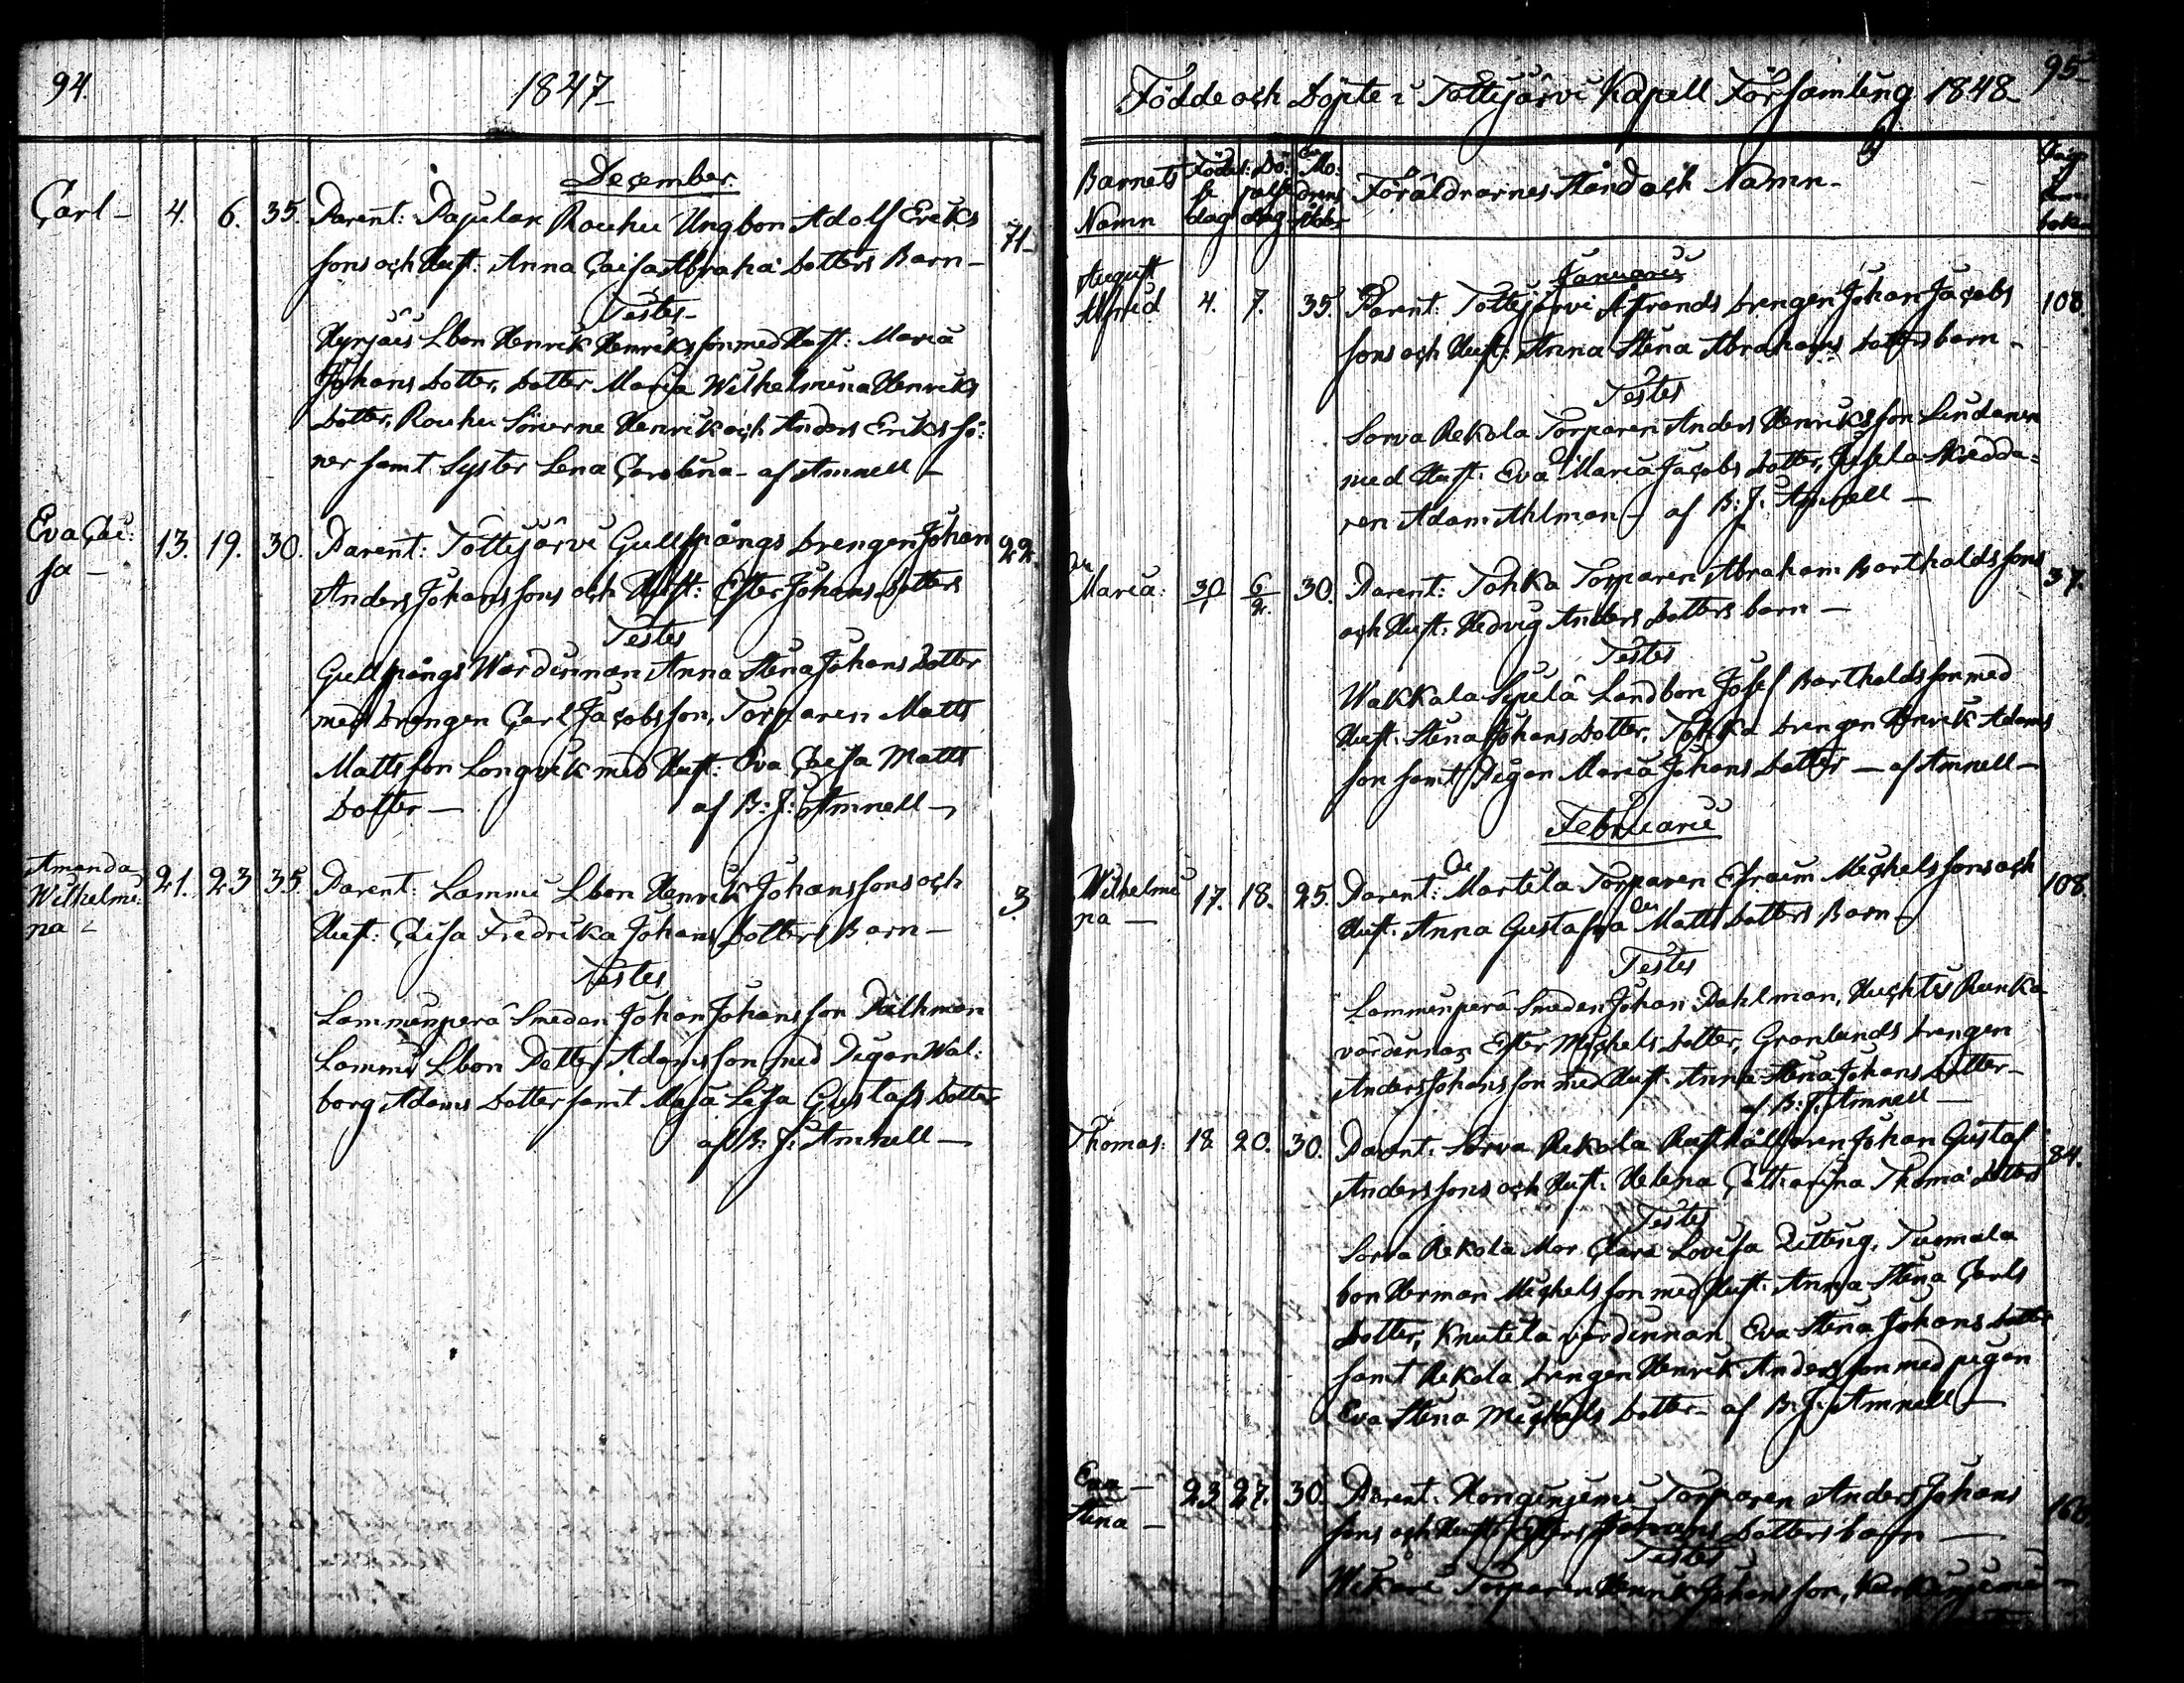 94.
1847
December
Carl – 4. 6. 35. Parent: Papulax Rouhu Ungbon Adolf Eriks
sons och Hust: Anna Caisa Abrahä Dotters Barn – 71
Testes
Hyrjäis Lbon Henrik Henriksson med Hust: Maria
Johans Dotter, Dotter Maria Wilhelmina Henriks
Dotter, Rouhu Sönerne Henrik och Anders Eriks sö:
ner samt Syster Lena Carolina – af Amnell –
Eva Cai:
sa – 13. 19. 30. Parent: Tottijärvi Gullspångs Drengen Johan 22.
Anders Johanssons och Hust: Ester Johans Dotters
Testes
Gullspångs Wärdinnan Anna Stina Johans Dotter
med Drengen Carl Jacobsson, Torparen Matts
Mattsson Longvik med Hust: Eva Caisa Matts
Dotter – af B: J: Amnell –
Amanda
Wilhelmi:
na – 21. 23 35. Parent: Lammi Lbon Henrik Johanssons och 3
Hust: Caisa Fredrika Johans Dotters Barn –
Testes
Lammenperä Smeden Johan Johansson Dahlman
Lammi Lbon Petter Adamsson med Pigan Wal:
borg Adams Dotter samt Maja Lisa Gustafs Dotter
af B: J: Amnell –
95
Födde och Döpte i Tottijärvi Kapell Församling 1848
Barnets
Namn
Födel:
se
dag
Dö:
pelse
dag
Mo:
drens
Ålder
Föräldrarnes Stånd och Namn –
Januarii
August
Alfred 4. 7. 35. Parent: Tottijärvi Åstrands Drengen Johan Jacobs 108.
sons och Hust: Anna Stina Abrahams Dotters barn –
Testes
Sorva Rekola Torparen Anders Henriksson Lindanen
med Hust: Eva Maria Jacobs Dotter, Jusela Skrädda:
ren Adam Ahlman – af B: J: Amnell –
Maria: 30/1 6/2. 30. Parent: Tohka Torparen Abraham Bartholdssons 37.
och Hust: Hedvig Anders Dotters barn –
Testes
Wakkala Sipilä Landbon Josef Bartholdsson med
Hust: Stina Johans Dotter, Tohka Drengen Henrik Adams
son samt Pigan Maria Johans Dotter – af Amnell –
Februarii
Wilhelmi
na – 17. 18. 25. Parent: Martila Torparen Efraim Michelssons och 108.
Hust: Anna Gustafva Matts Dotters Barn –
Testes
Lammenperä Smeden Johan Dahlman, Huchtis Runka
värdinnan Ester Michels Dotter, Granlunds Drengen
Anders Johansson med Hust: Anna Stina Johans Dotter –
af B: J: Amnell –
Thomas: 18 20. 30. Parent: Sorva Rekola Rusthållaren Johan Gustaf 84.
Anderssons och Hust: Helena Catharina Thomä Dotters
Testes
Sorva Rekola Mor Clara Lovisa Zitting, Tuomala
bon Herman Michelsson med Hust: Anna Stina Carls
Dotter, Knutila värdinnan Eva Stina Johans Dotter
samt Rekola Drengen Henrik Andersson med pigan
Eva Stina Michels Dotter – af B: J: Amnell –
Eva –
Stina – 23 27. 30. Parent: Honginjemi Torparen Anders Johans
sons och Hust: Esters Johans Dotters barn –
Testes
Torparen Henrik Johansson,